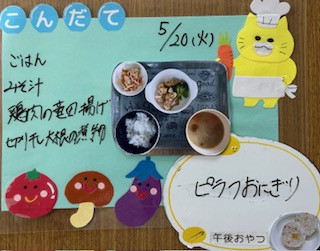 こんだて
5/20(火)
ごはん
みそ汁
鶏肉の竜田揚げ
切り干し大根の煮物
ピラフおにぎり
午後おやつ